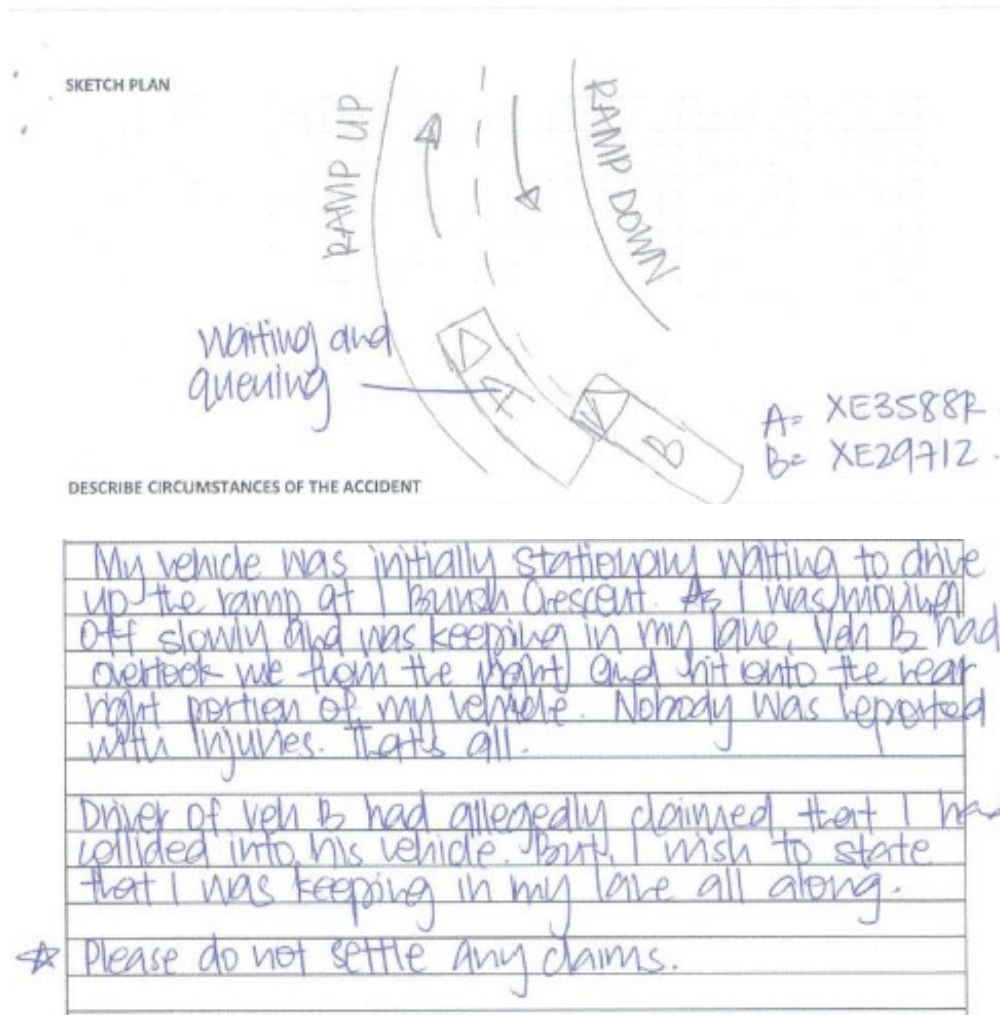 SKETCH PLAN
RAMP UP
RAMP DOWN
Waiting and
queuing
A
B
A= XE3588R
B= XE2971Z.
DESCRIBE CIRCUMSTANCES OF THE ACCIDENT
My vehicle was initially stationary waiting to drive
up the ramp at 1 Buroh Crescent. As I was moving
off slowly and was keeping in my lane, Veh B had
overtook me from the right and hit onto the rear
right portion of my vehicle. Nobody was reported
with injuries. That's all.
Driver of Veh B had allegedly claimed that I had
collided into his vehicle. But, I wish to state
that I was keeping in my lane all along.
☆ Please do not settle any claims.